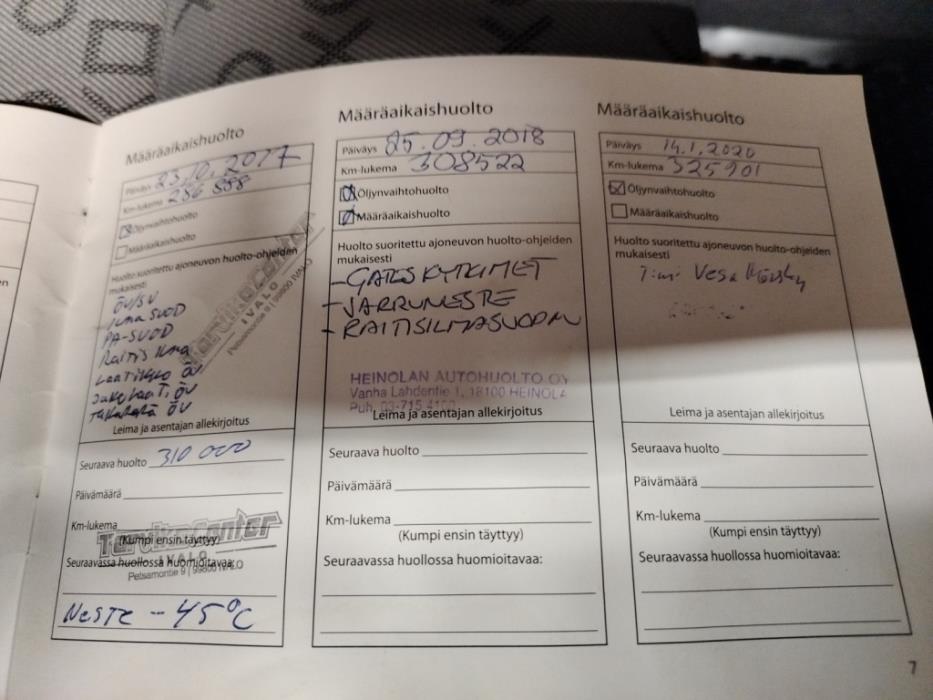 Määräaikaishuolto
Päiväys 23.10.2017
Km-lukema 286 888
Öljynvaihtohuolto
Määräaikaishuolto
Huolto suoritettu ajoneuvon huolto-ohjeiden
mukaisesti
ÖV/SV
ILMA SUOD
PA-SUOD
Raitis Ilma
Laatikko ÖV
Jakolaati ÖV
Takaperä ÖV
IVALO
Petsamontie 9 | 99800 IVALO
Leima ja asentajan allekirjoitus
Seuraava huolto 310 000
Päivämäärä
Km-lukema
(Kumpi ensin täyttyy)
Seuraavassa huollossa huomioitavaa:
IVALO
Petsamontie 9 | 99800 IVALO
NESTE -45°C
Määräaikaishuolto
Päiväys 25.09.2018
Km-lukema 308522
Öljynvaihtohuolto
Määräaikaishuolto
Huolto suoritettu ajoneuvon huolto-ohjeiden
mukaisesti
- JARRUNESTE
- RAITISILMASUODIN
HEINOLAN AUTOHUOLTO OY
Vanha Lahdentie 1, 18100 HEINOLA
Puh. 03-715
Leima ja asentajan allekirjoitus
Seuraava huolto
Päivämäärä
Km-lukema
(Kumpi ensin täyttyy)
Seuraavassa huollossa huomioitavaa:
Määräaikaishuolto
Päiväys 14.1.2020
Km-lukema 325901
Öljynvaihtohuolto
Määräaikaishuolto
Huolto suoritettu ajoneuvon huolto-ohjeiden
mukaisesti
T:mi Vesa
Leima ja asentajan allekirjoitus
Seuraava huolto
Päivämäärä
Km-lukema
(Kumpi ensin täyttyy)
Seuraavassa huollossa huomioitavaa:
7